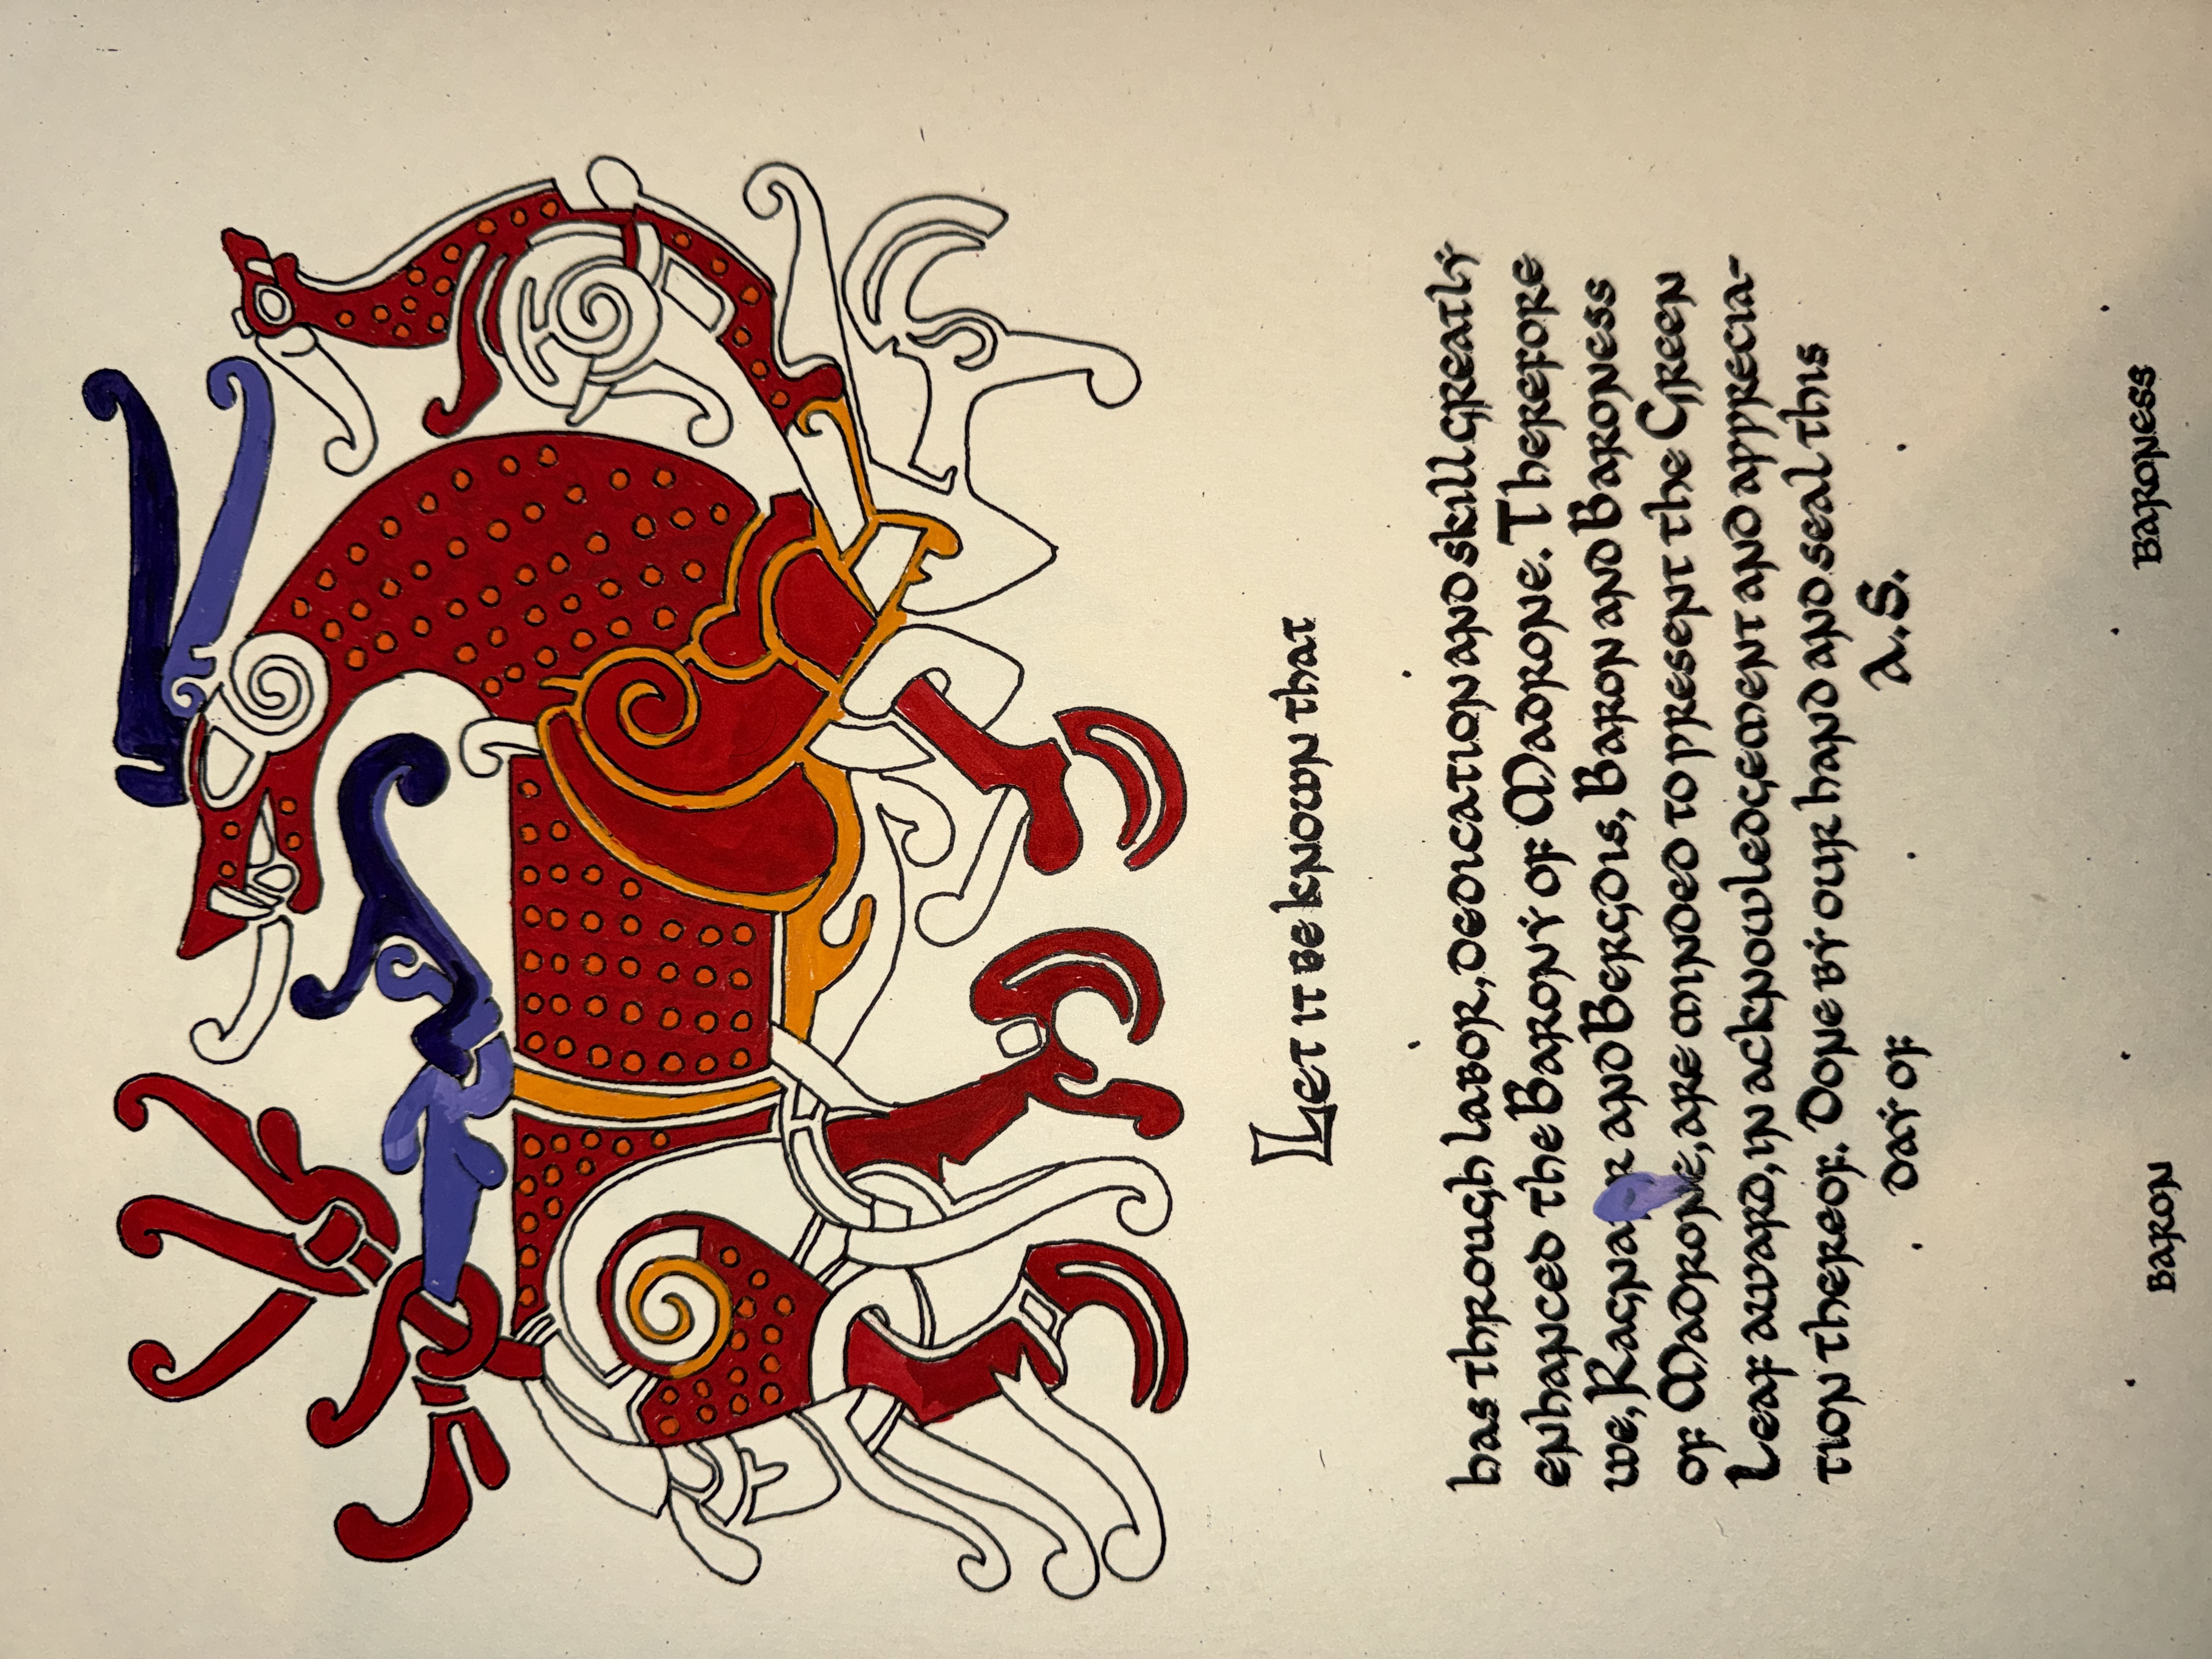 Let it be known that
has through labor, dedication and skill greatly
enhanced the Barony of Madrone. Therefore
we, Ragnar and Bergdis, Baron and Baroness
of Madrone, are minded to present the Green
Leaf award, in acknowledgement and apprecia-
tion thereof. Done by our hand and seal this
day of A.S.
Baron Baroness